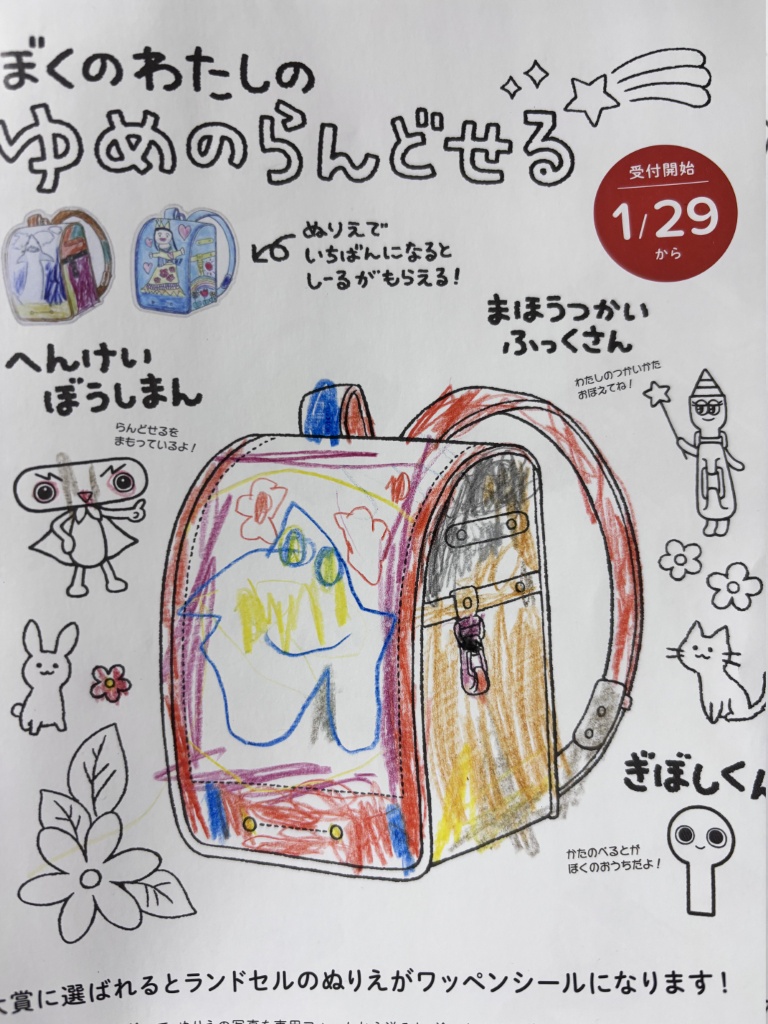 ぼくのわたしの
ゆめのらんどせる
受付開始
1/29
から
ぬりえで
いちばんになると
しーるがもらえる!
まほうつかい
ふっくさん
わたしのつかいかた
おぼえてね!
へんけい
ぼうしまん
らんどせるを
まもっているよ!
ぎぼしくん
かたのべるとが
ぼくのおうちだよ!
大賞に選ばれるとランドセルのぬりえがワッペンシールになります!